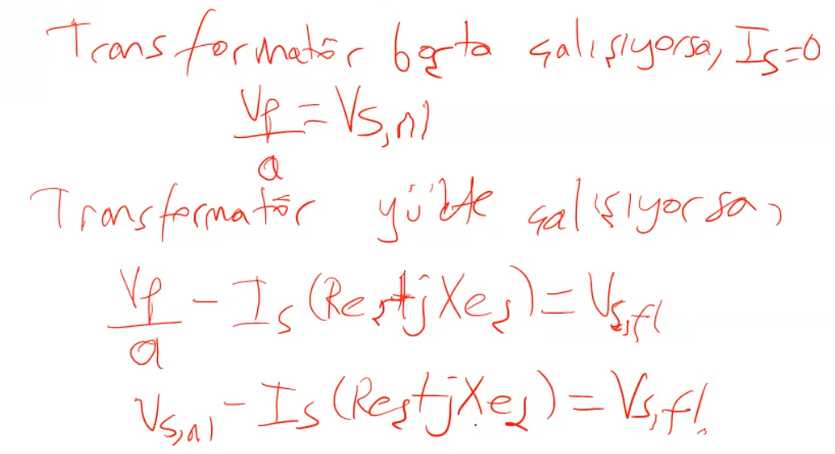 Transformatör boşta çalışıyorsa, Is=0
Vp/a = Vs,nl
Transformatör yükte çalışıyorsa,
Vp/a - Is (Reş+jXeş) = Vs,fl
Vs,nl - Is (Reş+jXeş) = Vs,fl